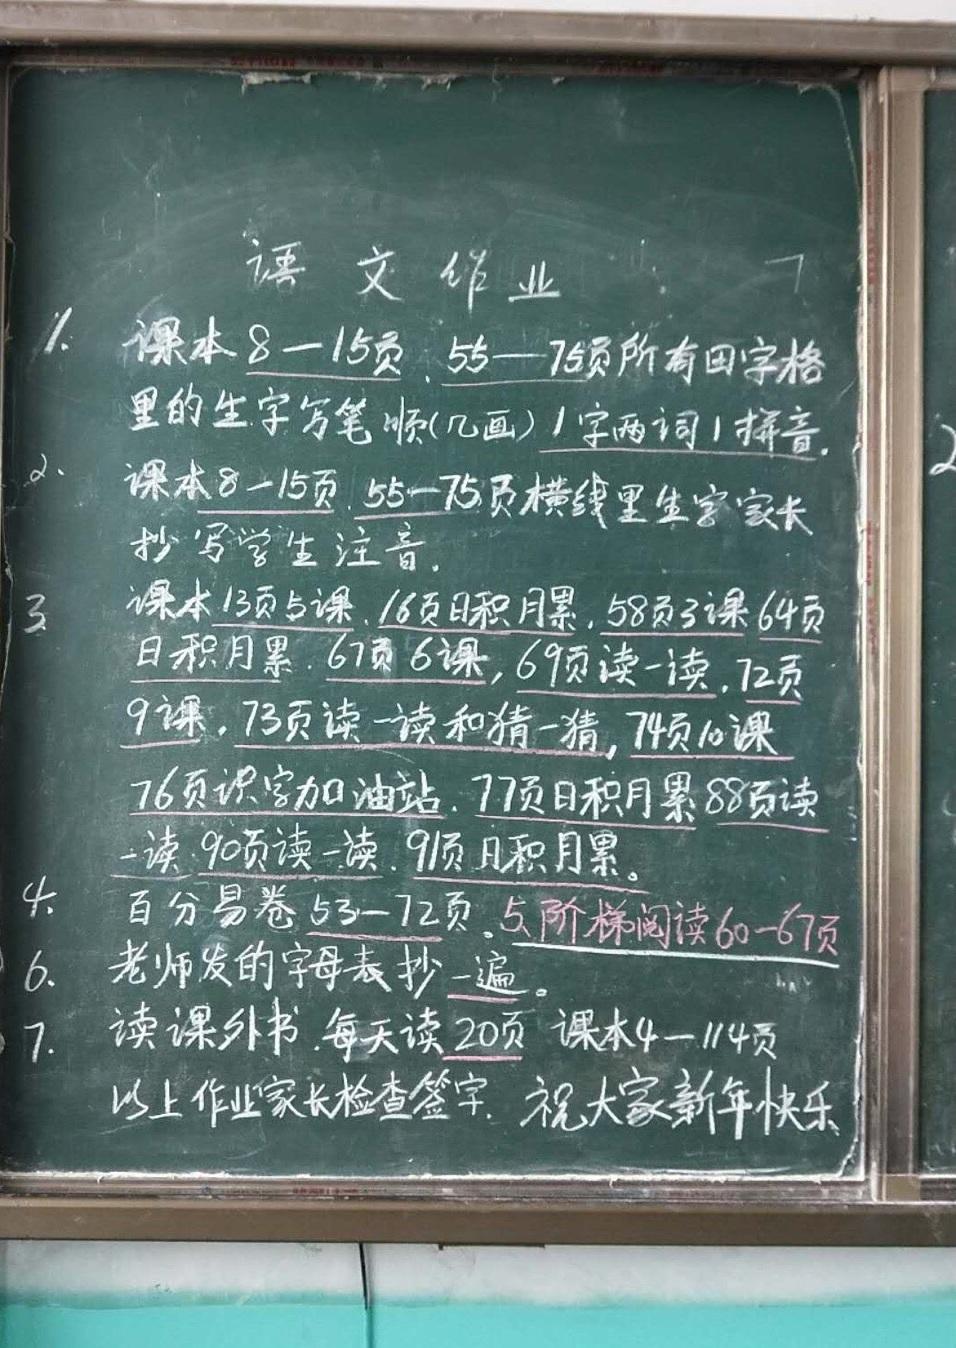 语文作业
1. 课本8—15页、55—75页所有田字格
里的生字写笔顺(几画)1字两词1拼音.
2. 课本8—15页、55—75页横线里生字家长
抄写学生注音.
3 课本13页5课、16页日积月累、58页3课64页
日积月累、67页6课,69页读一读、72页
9课、73页读一读和猜一猜,74页10课
76页识字加油站、77页日积月累88页读
一读、90页读一读、91页日积月累。
4. 百分易卷53—72页。5、阶梯阅读60—67页
6. 老师发的字母表抄一遍。
7. 读课外书、每天读20页 课本4—114页
以上作业家长检查签字. 祝大家新年快乐
2